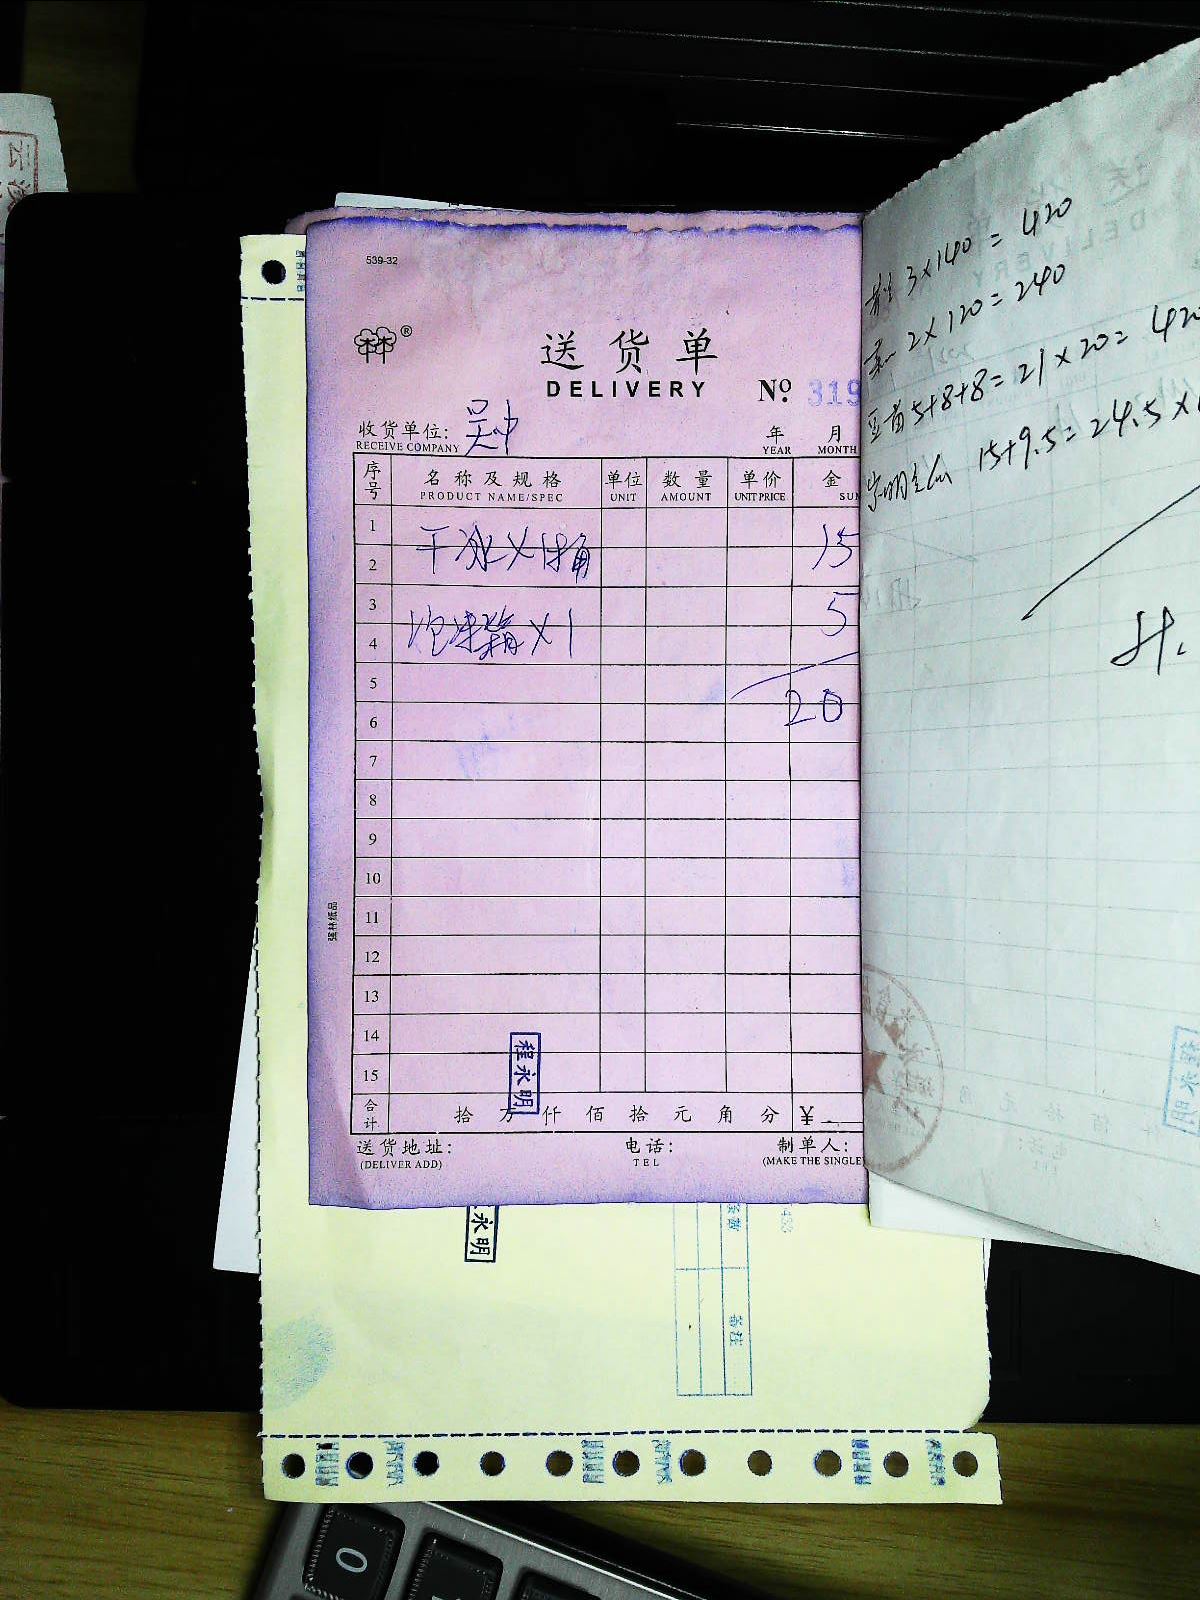 539-32
送货单
DELIVERY
№ 319
收货单位: 吴中
RECEIVE COMPANY
年 月
YEAR MONTH
序号 名称及规格 单位 数量 单价 金
PRODUCT NAME/SPEC UNIT AMOUNT UNIT PRICE SUM
1
干冰×1桶 15
2
3
泡沫箱×1 5
4
5
20
6
7
8
9
10
11
12
13
14
15
程永明
合计 拾 万 仟 佰 拾 元 角 分 ¥
送货地址: 电话: 制单人:
(DELIVER ADD) TEL (MAKE THE SINGLE
强林纸品
3×140=420
2×120=240
5+8+8=21×20=420
15+9.5=24.5×
永明
备注
0